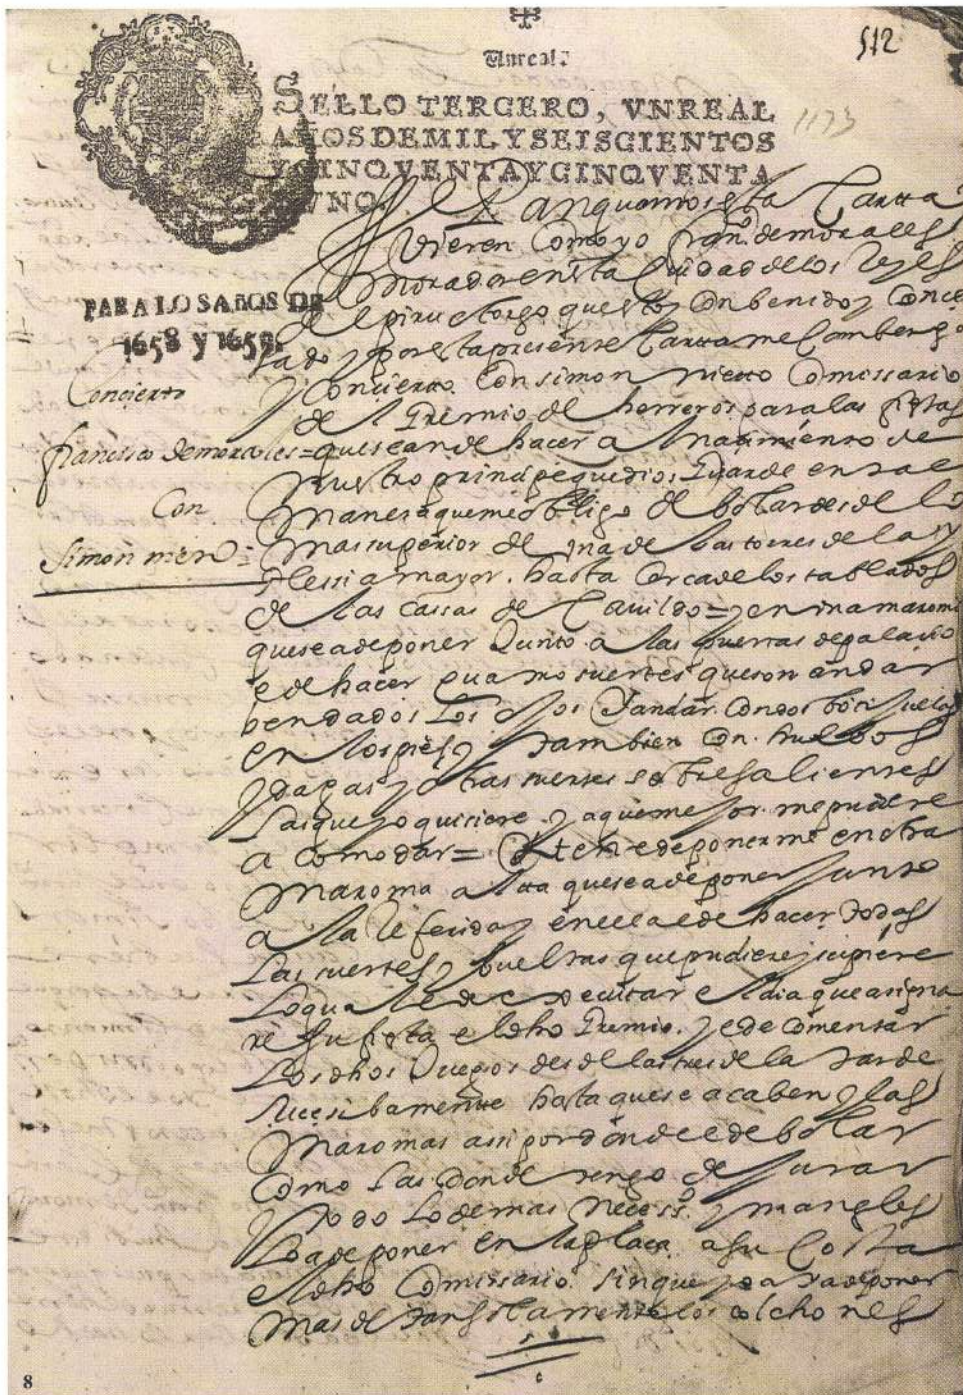 512
Un real.
SELLO TERCERO, VN REAL
AÑOS DE MIL Y SEISCIENTOS
Y CINQVENTA Y CINQVENTA
Y VNO.
1173
PARA LOS AÑOS DE
1658 y 1659
Concierto
francisco de morales =
Con
Simon nieto =
quantos esta Carta
Vieren Como yo fran.co de morales
morador en esta Ciudad de los Reyes
del piru otorgo que estoy conbenido y conçer
tado y por esta presente Carta me combengo
y concierto con simon nieto Comissario
de el Gremio de herreros para las fiestas
que se an de hacer a el naçimiento de
nuestro prinçipe que dios Guarde en tal
manera que me obligo de bolar desde lo
mas superior de una de las torres de la Y
glessia mayor hasta çerca de los tablados
de las cassas de Cauildo = y en una maroma
que se a de poner Junto a las puertas de palaçio
e de hacer quatro suertes que son andar
bendados los ojos Y andar con dos botijuelas
en los pies y tambien con huebos
y dagas y otras suertes sobresalientes
las que yo quisiere y a que mejor me pudiere
acomodar = Yten e de ponerme en otra
maroma alta que se a de poner junto
a la Referida y en ella e de hacer todas
las suertes y bueltas que pudiere y supiere
lo qual e de executar el dia que asigna
re su fiesta el dho Gremio. y e de comensar
los dhos Juegos desde las tres de la tarde
suçesibamente hasta que se acaben y las
maromas assi por donde e de bolar
como las donde tengo de jurar
y todo lo demas neçess.o y mangles
lo a de poner en la plaça a su Costa
el dho Comissario sin que yo aya de poner
mas de tan solamente los colchones
8